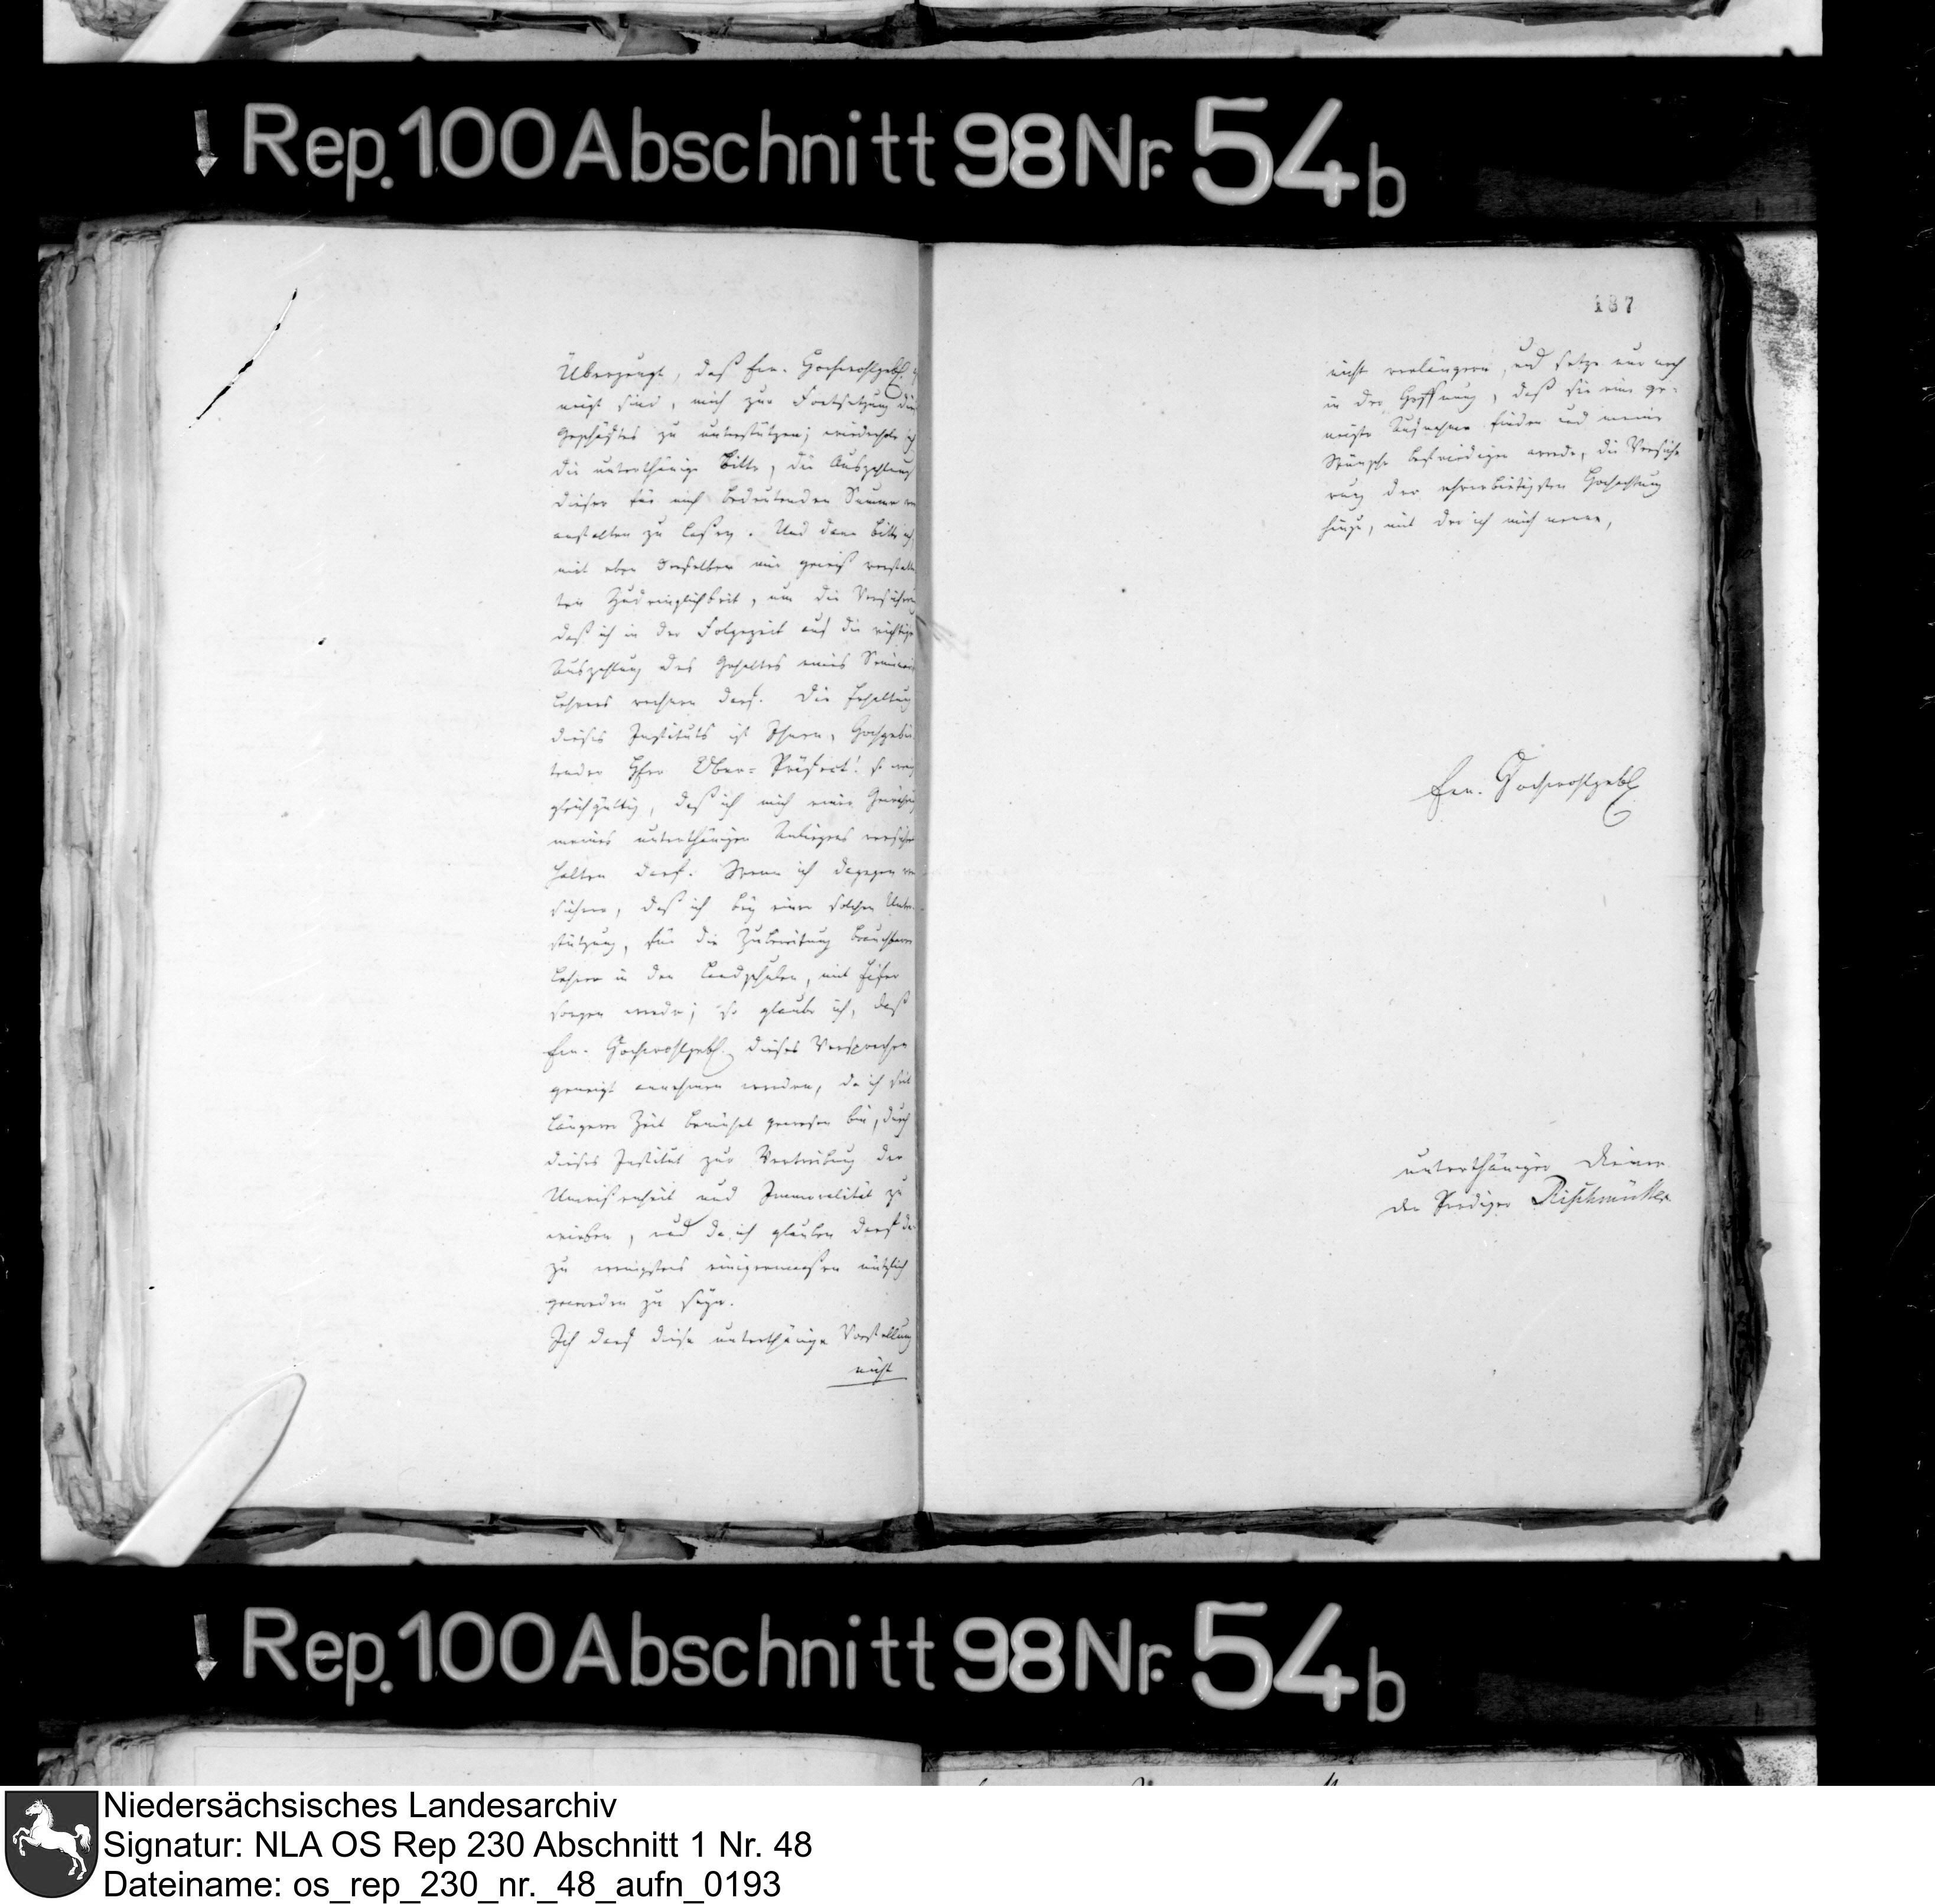 Rep. 100 Abschnitt 98 Nr. 54 b
Überzeugt, daß Ew. Hochwohlgeb. ge-
neigt sind, mich zur Fortsetzung dieses
Geschäftes zu unterstützen; wiederhole ich
die unterthänige Bitte, die Auszahlung
dieser für mich bedeutenden Summe ver-
anstalten zu laßen. Und dann bitte ich
mit eben derselben mir gewiß verstatte
ten Zudringlichkeit, um die Versicherung
daß ich in der Folgezeit auf die richtige
Auszahlung des Gehaltes eines Seminar
Lehrers rechnen darf. Die Erhaltung
dieses Instituts ist Ihnen, Hochgebie-
tender Herr Ober-Präfect! so wenig
gleichgültig, daß ich mich einer Gewährung
meines unterthänigen Anliegens versichert
halten darf. Wenn ich dagegen ver
sichere, daß ich bey einer solchen Unter-
stützung, für die Zubereitung brauchbarer
Lehrer in den Landschulen, mit Eifer
sorgen werde; so glaube ich, daß
Ew. Hochwohlgeb. dieses Versprechen
geneigt annehmen werden, da ich seit
längerer Zeit bemühet gewesen bin, durch
dieses Institut zur Vertreibung der
Unwißenheit und Immoralität zu
wirken, und da ich glauben darf da-
zu wenigstens einigermaßen nützlich
geworden zu seyn.
Ich darf diese unterthänige Vorstellung
nicht
187
nicht verlängern, und setze nur noch
in der Hoffnung, daß sie eine ge-
neigte Aufnahme finden und meine
Wünsche befriedigen werde, die Versiche
rung der ehrerbietigsten Hochachtung
hinzu, mit der ich mich nenne,
Ew. Hochwohlgeb.
unterthäniger Diener
der Prediger Rischmüller
Rep. 100 Abschnitt 98 Nr. 54 b
Niedersächsisches Landesarchiv
Signatur: NLA OS Rep 230 Abschnitt 1 Nr. 48
Dateiname: os_rep_230_nr._48_aufn_0193